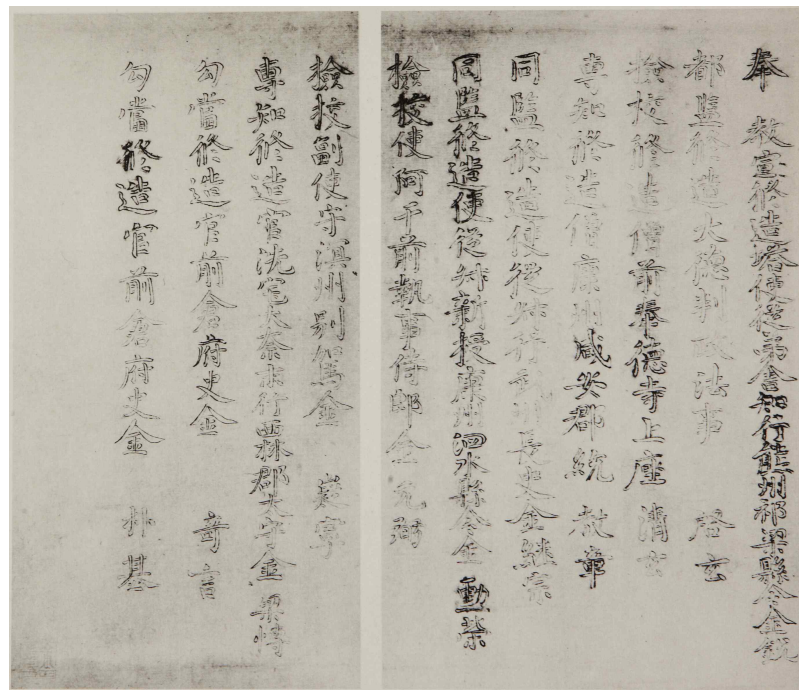 奉 教宣修造塔使從弟舍知行熊州祁梁縣令金銳
都監修造大德判政法事 啓玄
檢校修造僧前奉德寺上座 清玄
專知修造僧康州咸安郡統 教章
同監修造使從叔行武州長史金繼宗
同監修造使從叔新授康州泗水縣令金 勳榮
檢校使阿干前執事侍郎金元弼
檢校副使守溟州別駕金 嶷寧
專知修造官洗宅大奈末行西林郡大守金 梁博
勾當修造官前倉府史金 奇言
勾當修造官前倉府史金 朴基